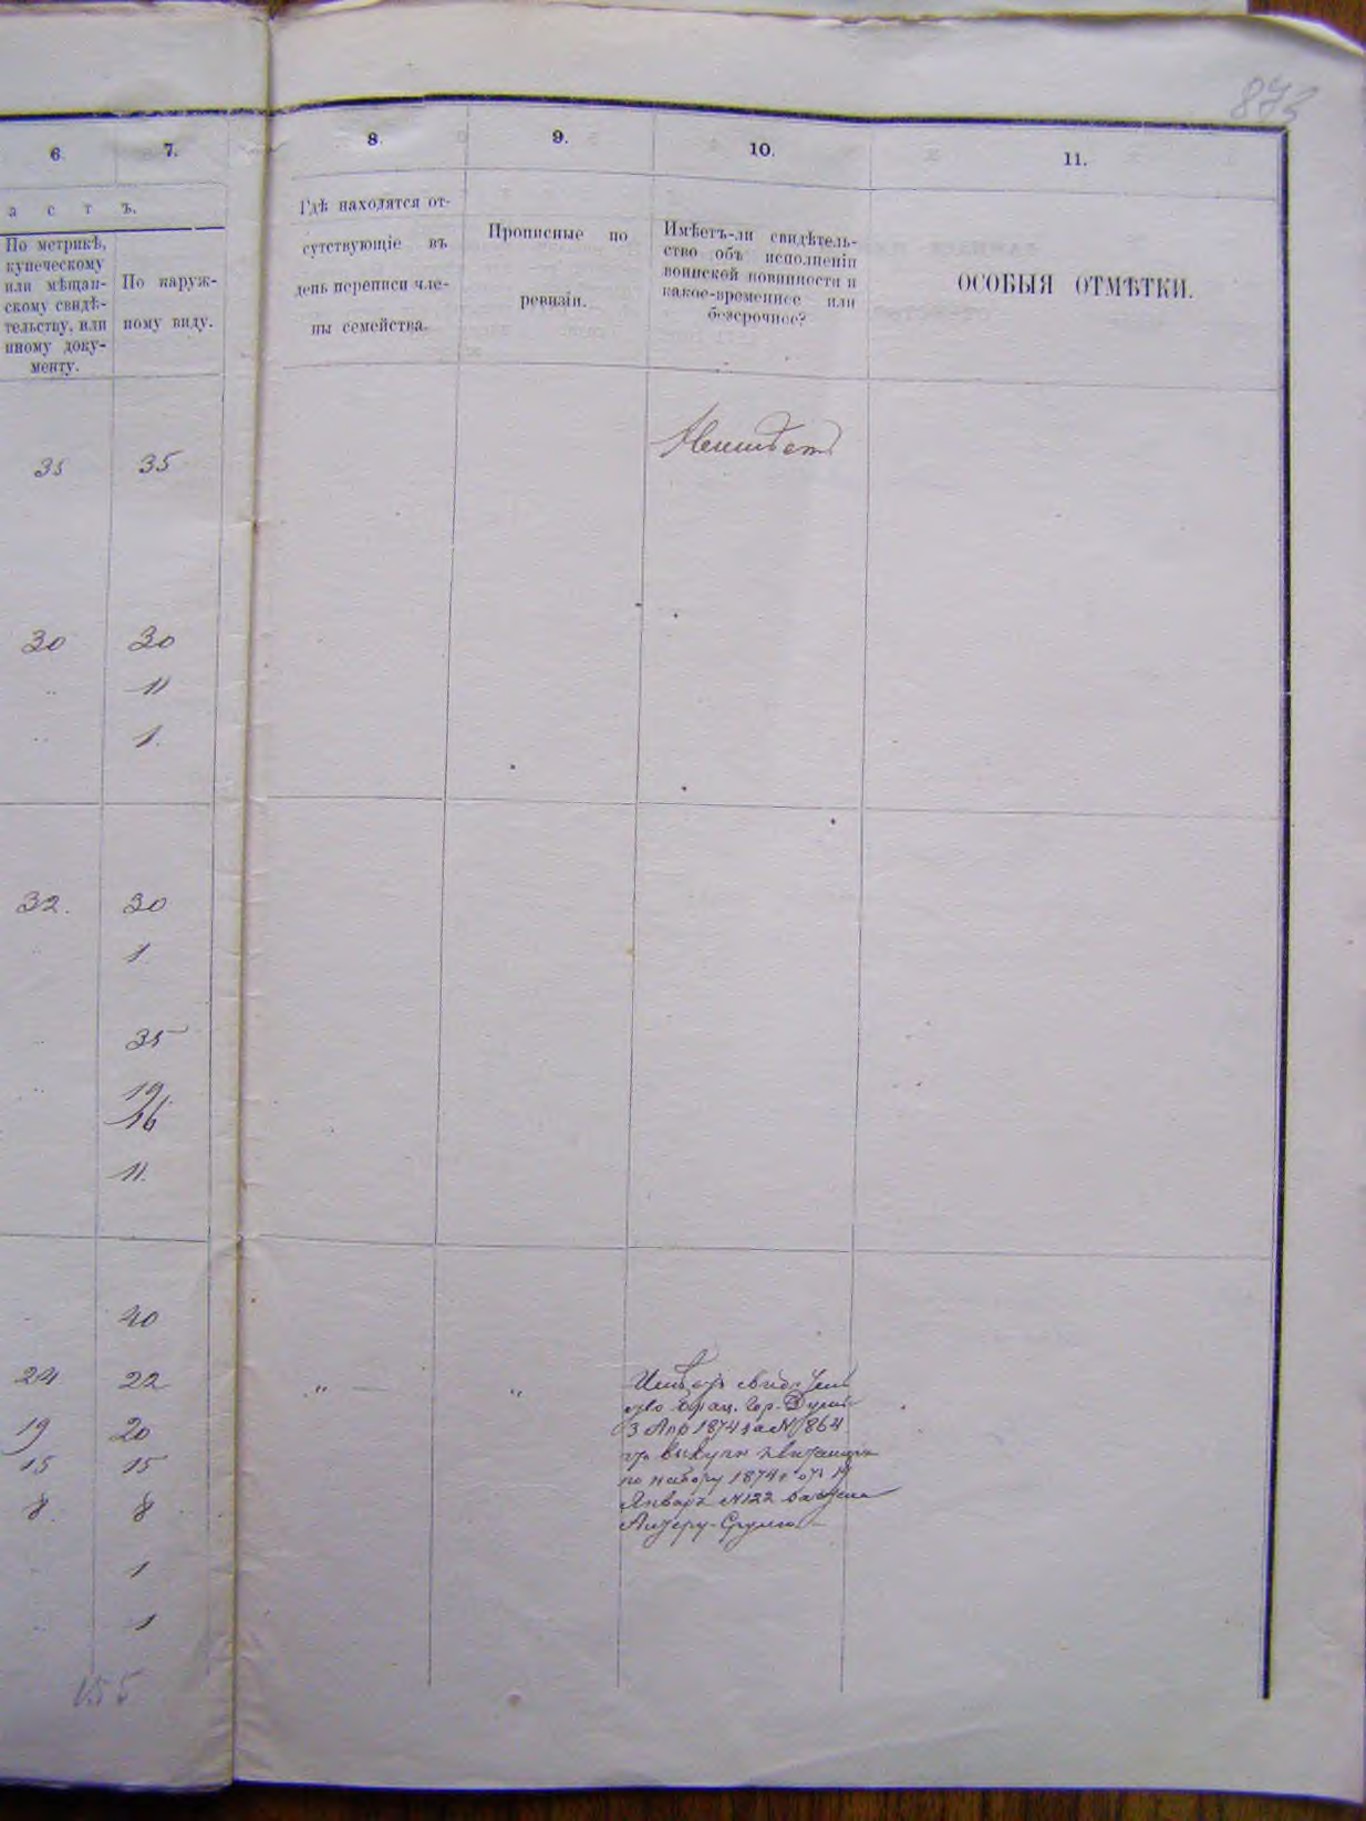 873
6. 7. 8. 9. 10. 11.
а с т ъ.
По метрикѣ,
купеческому
или мѣщан-
скому свидѣ-
тельству, или
иному доку-
менту.
По наруж-
ному виду.
Гдѣ находятся от-
сутствующіе въ
день переписи чле-
ны семейства.
Прописные по
ревизіи.
Имѣетъ-ли свидѣтель-
ство объ исполненіи
воинской повинности и
какое-временное или
безсрочное?
ОСОБЫЯ ОТМѢТКИ.
35 35
30 30
" 11
" 1.
32. 30
" 1.
" 35
" 19.
16
11.
40
24 22 " — "
19 20
15 15
8. 8
1
1
155
3 Апр 1874 за № 864
по набору 1874 г отъ 14
Январ № 122